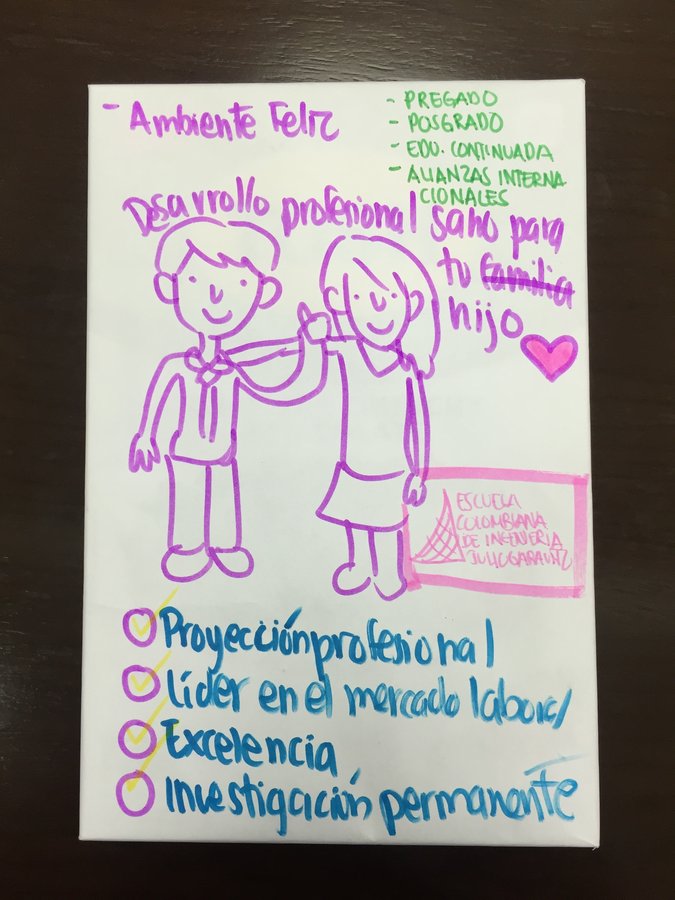 - Ambiente Feliz
- PREGADO
- POSGRADO
- EDU. CONTINUADA
- ALIANZAS INTERNA
CIONALES
Desarrollo profesional sano para
tu familia
hijo
ESCUELA
COLOMBIANA
DE INGENIERIA
JULIO GARAVITO
Proyección profesional
Líder en el mercado laboral
Excelencia
Investigación permanente